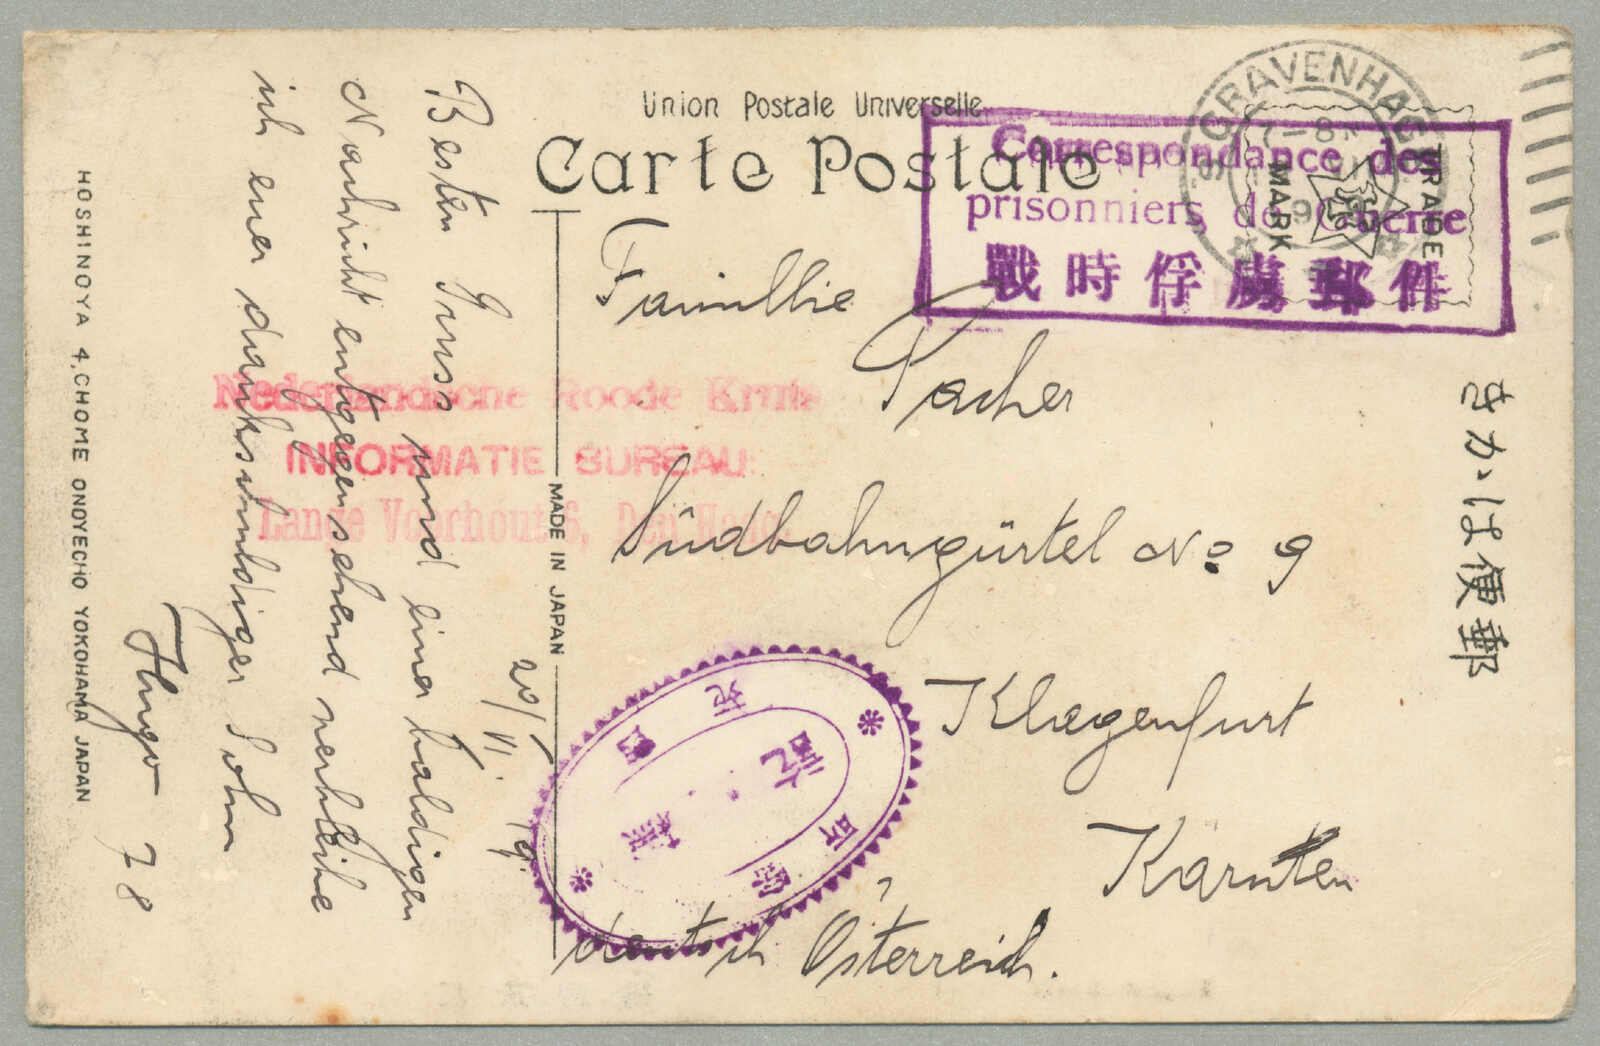 Union Postale Universelle
Carte Postale
Correspondance des
prisonniers de Guerre
戰時俘虜郵件
GRAVENHAG
TRADE
MARK
きかゝは便郵
Famillie
Pacher
Südbahngürtel No 9
Klagenfurt
Kärnten
deutsch Österreich.
20/VI. 19.
Besten Gruss und einer baldigen
Nachricht entgegensehend verbleibe
ich euer dankschuldiger Sohn
Hugo 78
Nederlandsche Roode Kruis
INFORMATIE BUREAU
Lange Voorhout 6, Den Haag.
MADE IN JAPAN
HOSHINOYA 4,CHOME ONOYECHO YOKOHAMA JAPAN